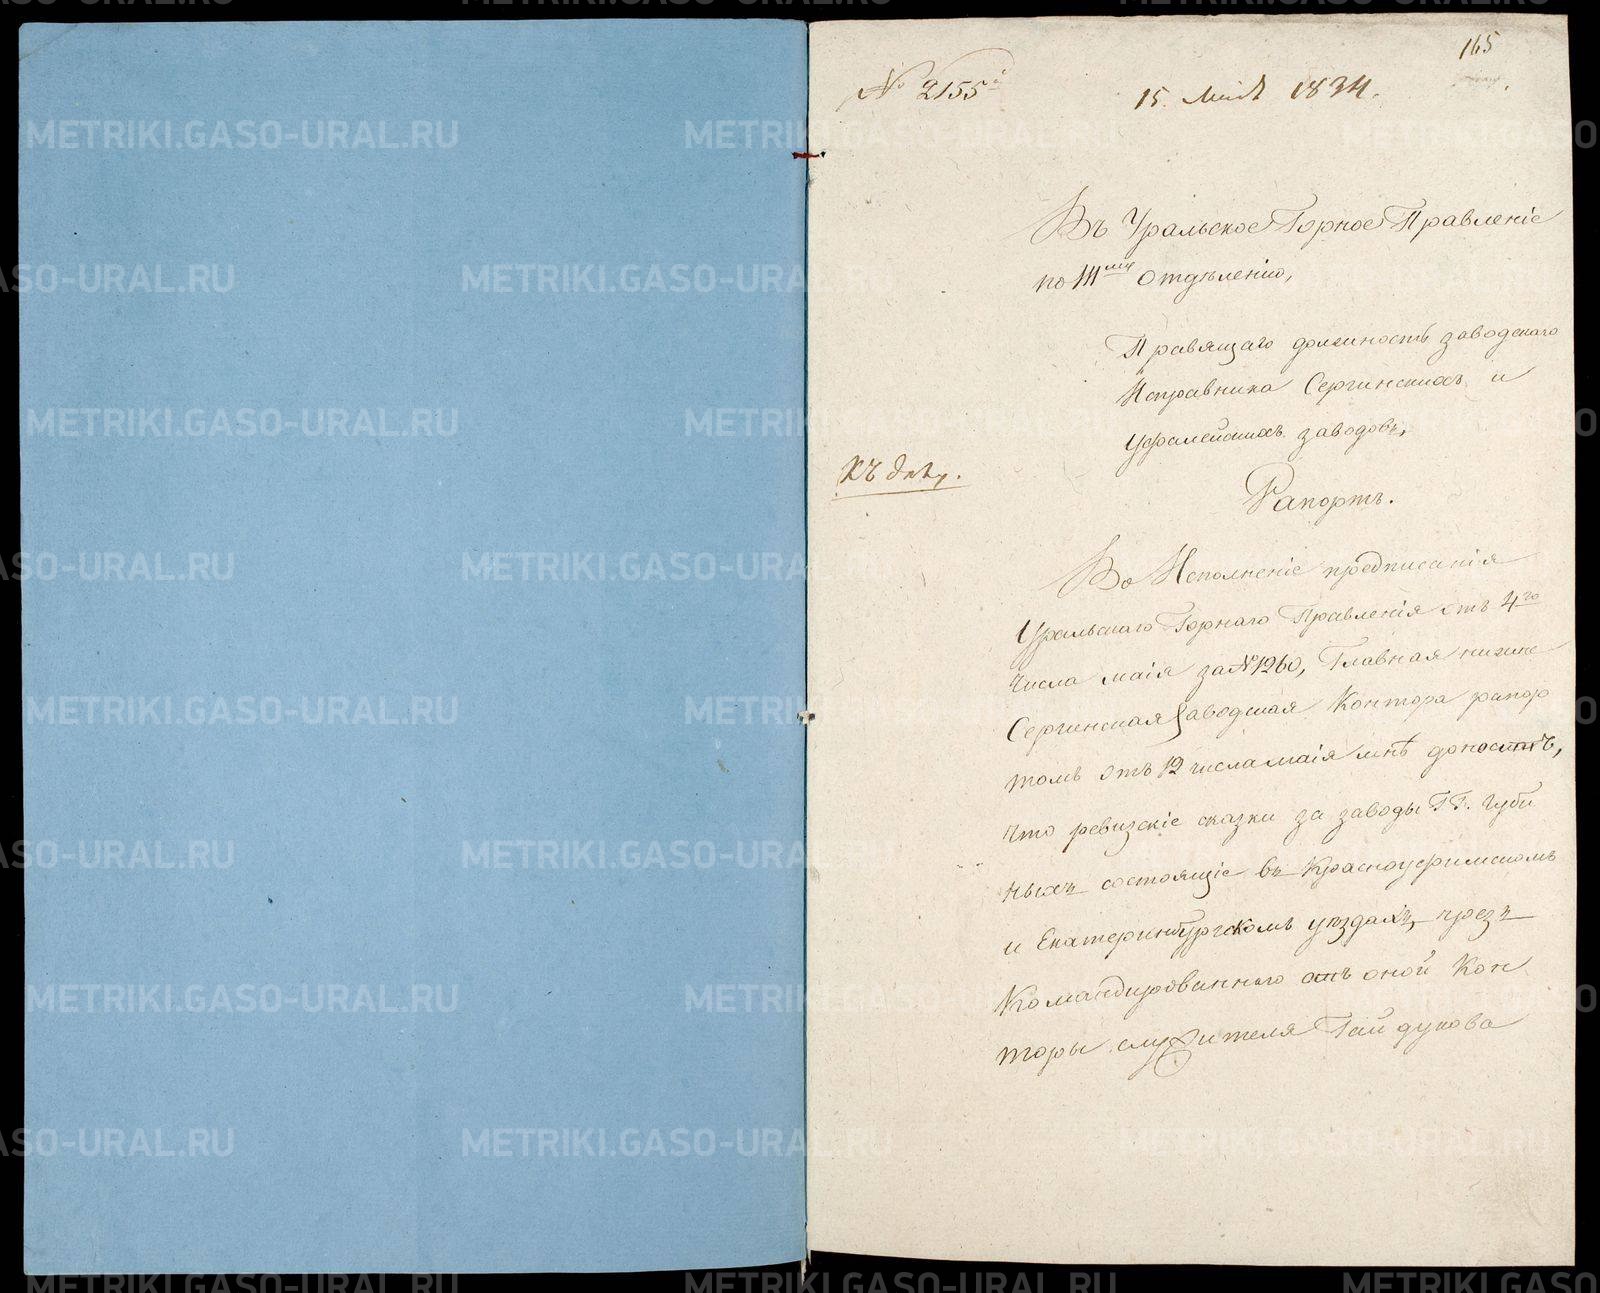 165
№ 2155й
15. Маія 1834.
Въ Уральское Горное Правленіе
по III му Отдѣленію,
Правящаго должность заводскаго
Исправника Сергинскихъ и
Уфалейскихъ заводовъ,
Къ дѣлу.
Рапортъ.
Во Исполненіе предписанія
Уральскаго Горнаго Правленія отъ 4го
числа маія за №1260, Главная нижне
Сергинская Заводская Контора рапор
томъ отъ 12 числа маія мнѣ доноситъ,
что ревизскіе сказки за заводы ГГ. Губи
ныхъ состоящіе въ Красноуфимскомъ
и Екатеринбургскомъ уѣздахъ, чрезъ
Командированнаго отъ оной Кон
торы служителя Гайдукова
METRIKI.GASO-URAL.RU